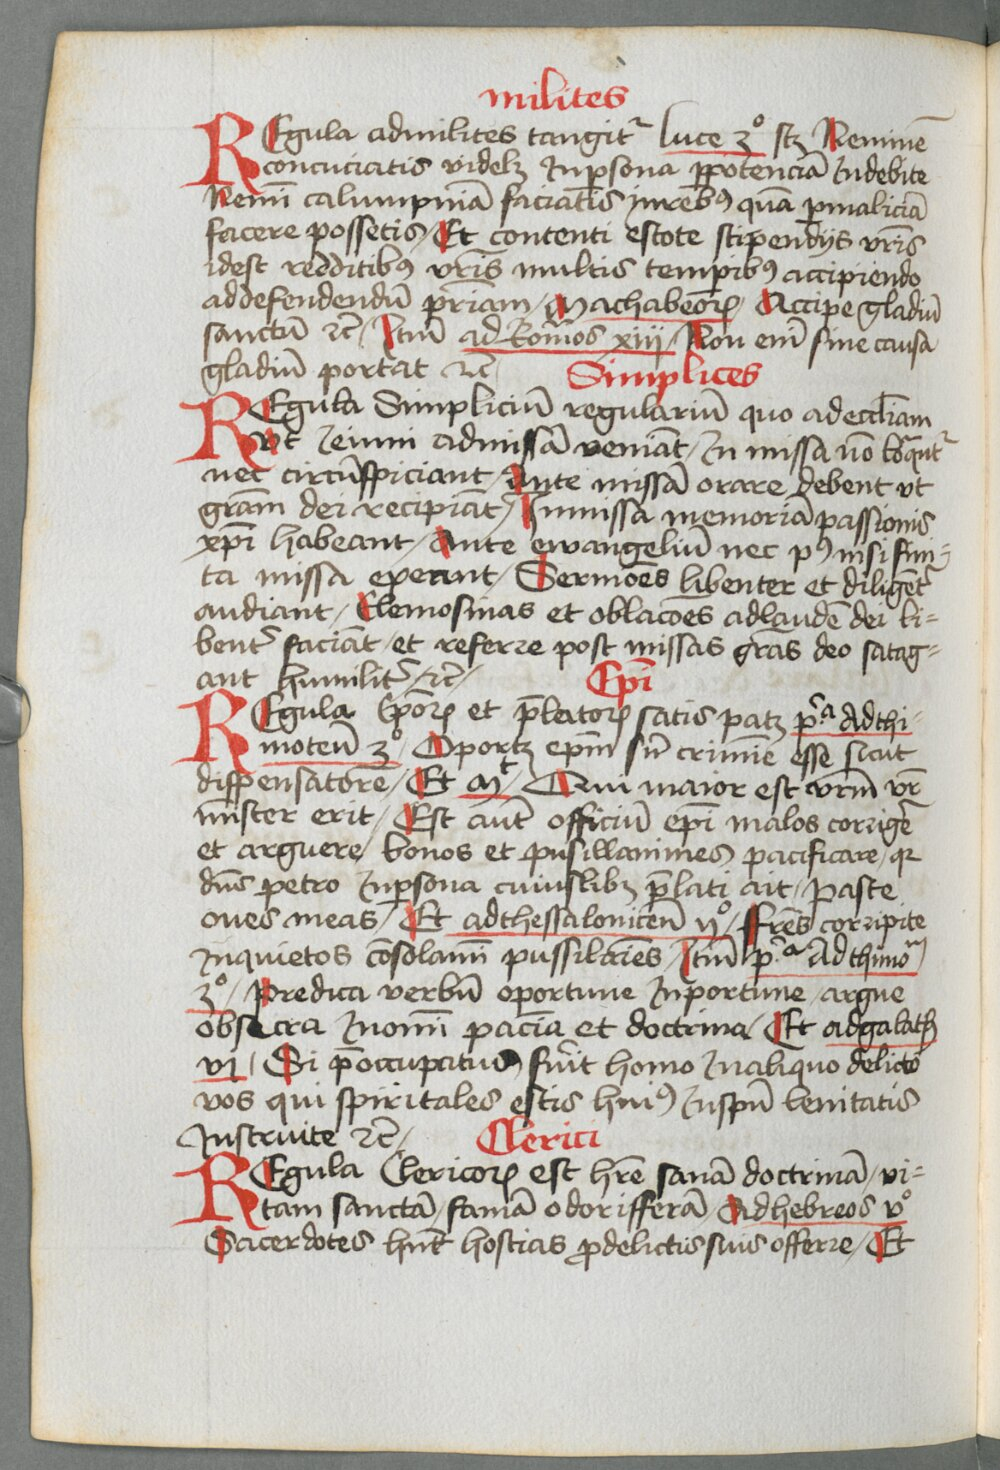 milites
REgula ad milites tangitᷣ luce 3° sꝫ Neminē
concuciatis videlꝫ In psona ꝑpotenciā Indebite
Nemī calumpniā faciatis in rebꝰ quā ꝑ maliciā
facere possetis / Et contenti estote stipendijs vr̄is
idest redditibꝰ vr̄is multis tempibꝰ accipiendo
ad defendendū pr̄iam / Machabeoꝝ / Accipe gladiū
sanctū ⁊c̄ / Itm̄ ad Romōs xiij / Non em̄ sine causa
gladiū portat ⁊c̄
Simplices
REgula Simpliciū regulariū quo ad eccl̄iam
Vt Ieiuni ad missā veniāt / In missa nō
nec circūspiciant / Ante missā orare debent vt
grām dei recipiāt / In missa memoriā passionis
xp̄i habeant / Ante ewangeliū nec pꝰ nisi fini-
ta missa exeant / Sermōes libenter et diligēt᷑
audiant / Elemosinas et oblacōes ad laudē dei li-
bent᷑ faciāt / et referre post missas grās deo satag-
ant humilit᷑ / ⁊c̄ /
Ep̄i
REgula Ep̄oꝝ et p̄latoꝝ satis patꝫ pͣ Ad thi-
moteū 3° / Oportꝫ ep̄m sn̄ crimīe esse sicut
dispensatorē / Et Mᵗ / Qui maior est vrm̄ vr̄
mīster erit / Est aut̄ officiū ep̄i malos corrigē
et arguere / bonos et pusillanimes pacificare / qꝛ
dn̄s petro In psona cuiuslibꝫ p̄lati ait / Pasce
oues meas / Et ad thessalonicen̄ ij° / Frēs corripite
Inquietos cōsolamī pussillaīes / Itm̄ pͣ Ad thimoᵐ
3° / Predica verbū oportune Inportune / argue
obsecra In om̄i pacīa et doctrina / Et ad galathꝭ
vj / Si p̄occupatus fu᷑it homo In aliquo delicto
vos qui spiritales estis huiꝰ In spū lenitatis
Instruite ⁊c̄ /
Clerici
REgula Clericoꝝ est hr̄e sanā doctrinā / vi-
tam sanctā / famā odorifferā / Ad hebreos v°
Sacerdotes hn̄t hostias ꝓ delictis suis offerre / Et